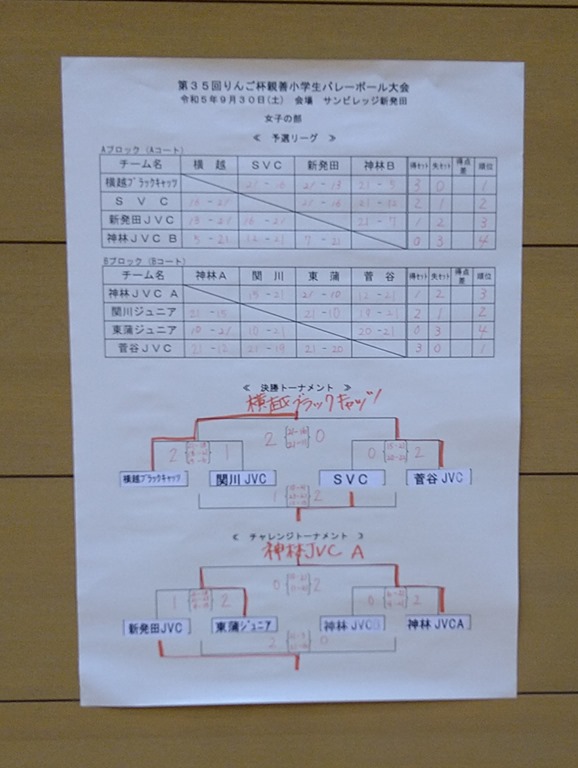 第35回りんご杯親善小学生バレーボール大会
令和5年9月30日(土) 会場 サンビレッジ新発田
女子の部
≪ 予選リーグ ≫
Aブロック (Aコート)
チーム名 横越 SVC 新発田 神林B 得セット 失セット 得点差 順位
横越ブラックキャッツ 21-16 21-13 21-5 3 0 1
SVC 16-21 21-16 2 1 2
新発田JVC 13-21 16-21 21-7 1 2 3
神林JVC B 5-21 7-21 0 3 4
Bブロック (Bコート)
チーム名 神林A 関川 東蒲 菅谷 得セット 失セット 得点差 順位
神林JVC A 15-21 21-10 12-21 1 2 3
関川ジュニア 21-15 21-10 19-21 2 1 2
東蒲ジュニア 10-21 10-21 20-21 0 3 4
菅谷JVC 21-12 21-19 21-20 3 0 1
≪ 決勝トーナメント ≫
横越ブラックキャッツ
2 0
2 1 0 2
横越ブラックキャッツ 関川JVC SVC 菅谷JVC
1 2
≪ チャレンジトーナメント ≫
神林JVC A
0 2
1 2 0 2
新発田JVC 東蒲ジュニア 神林JVCB 神林JVCA
2 0